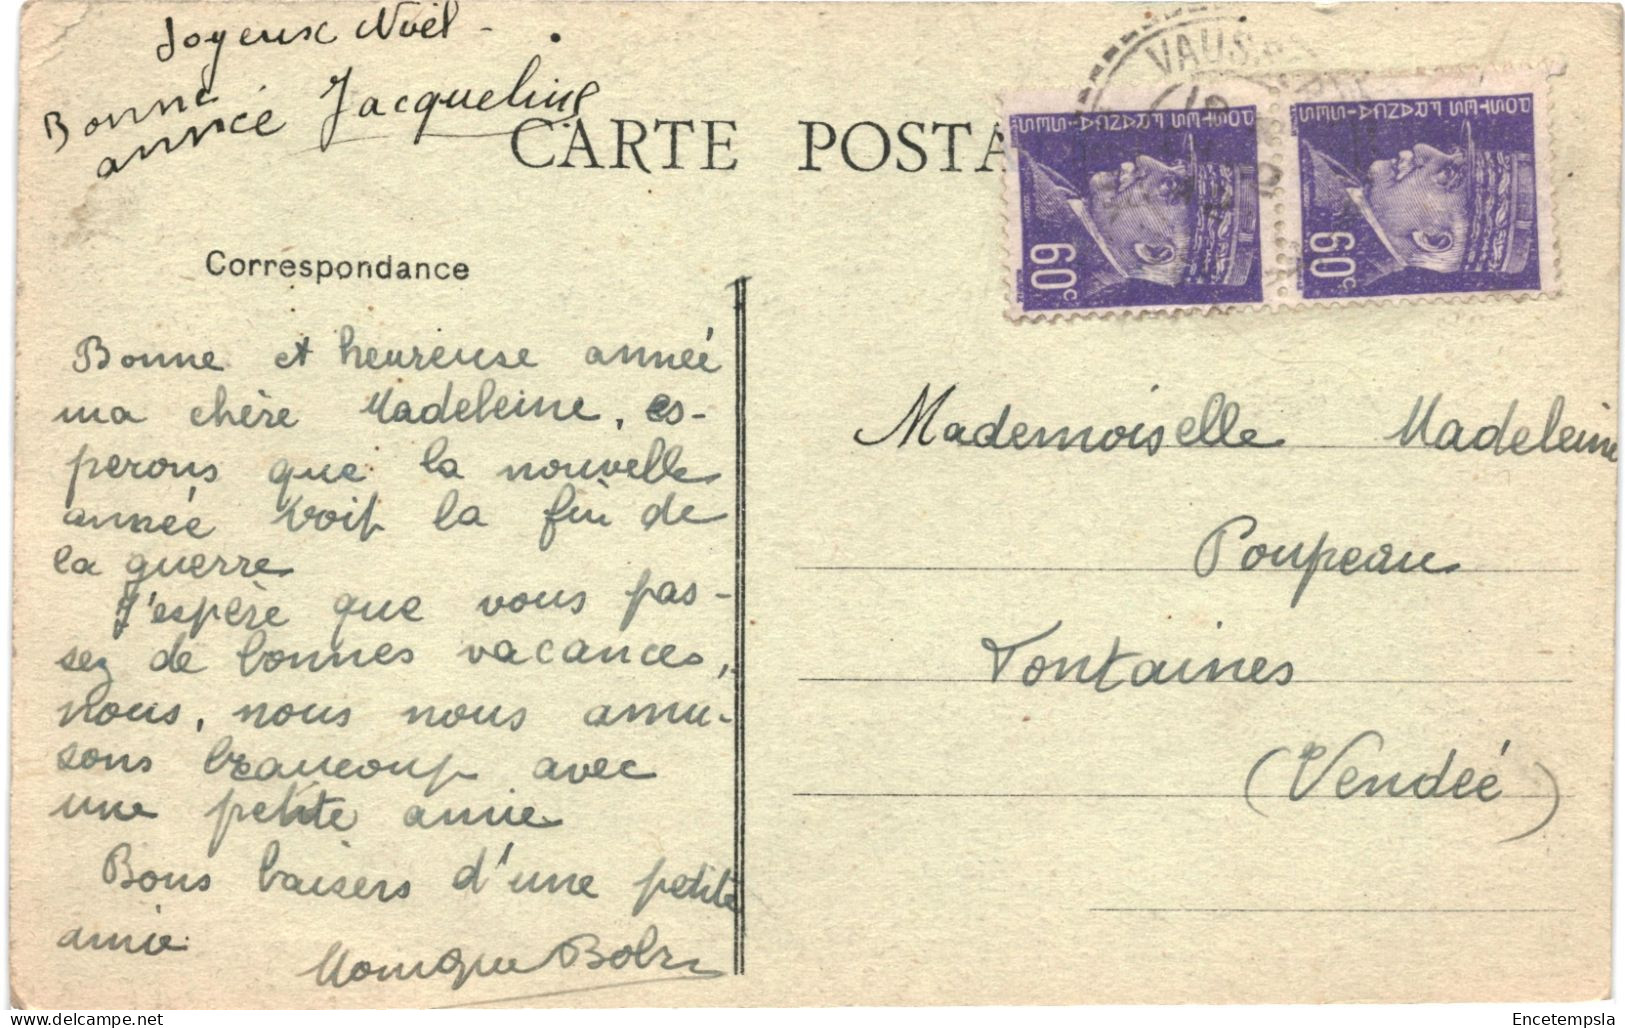 Joyeux Noël -
Bonne
année Jacqueline
CARTE POSTA
POSTES FRANÇAISES
POSTES FRANÇAISES
60c
60c
Correspondance
Bonne et heureuse année
ma chère Madeleine, es-
perons que la nouvelle
année voit la fin de
la guerre
J'espère que vous pas-
sez de bonnes vacances,
nous, nous nous amu-
sons beaucoup avec
une petite amie
Bons baisers d'une petite
amie
Monique
Mademoiselle Madeleine
Poupeau
Fontaines
(Vendée)
Encetempsla